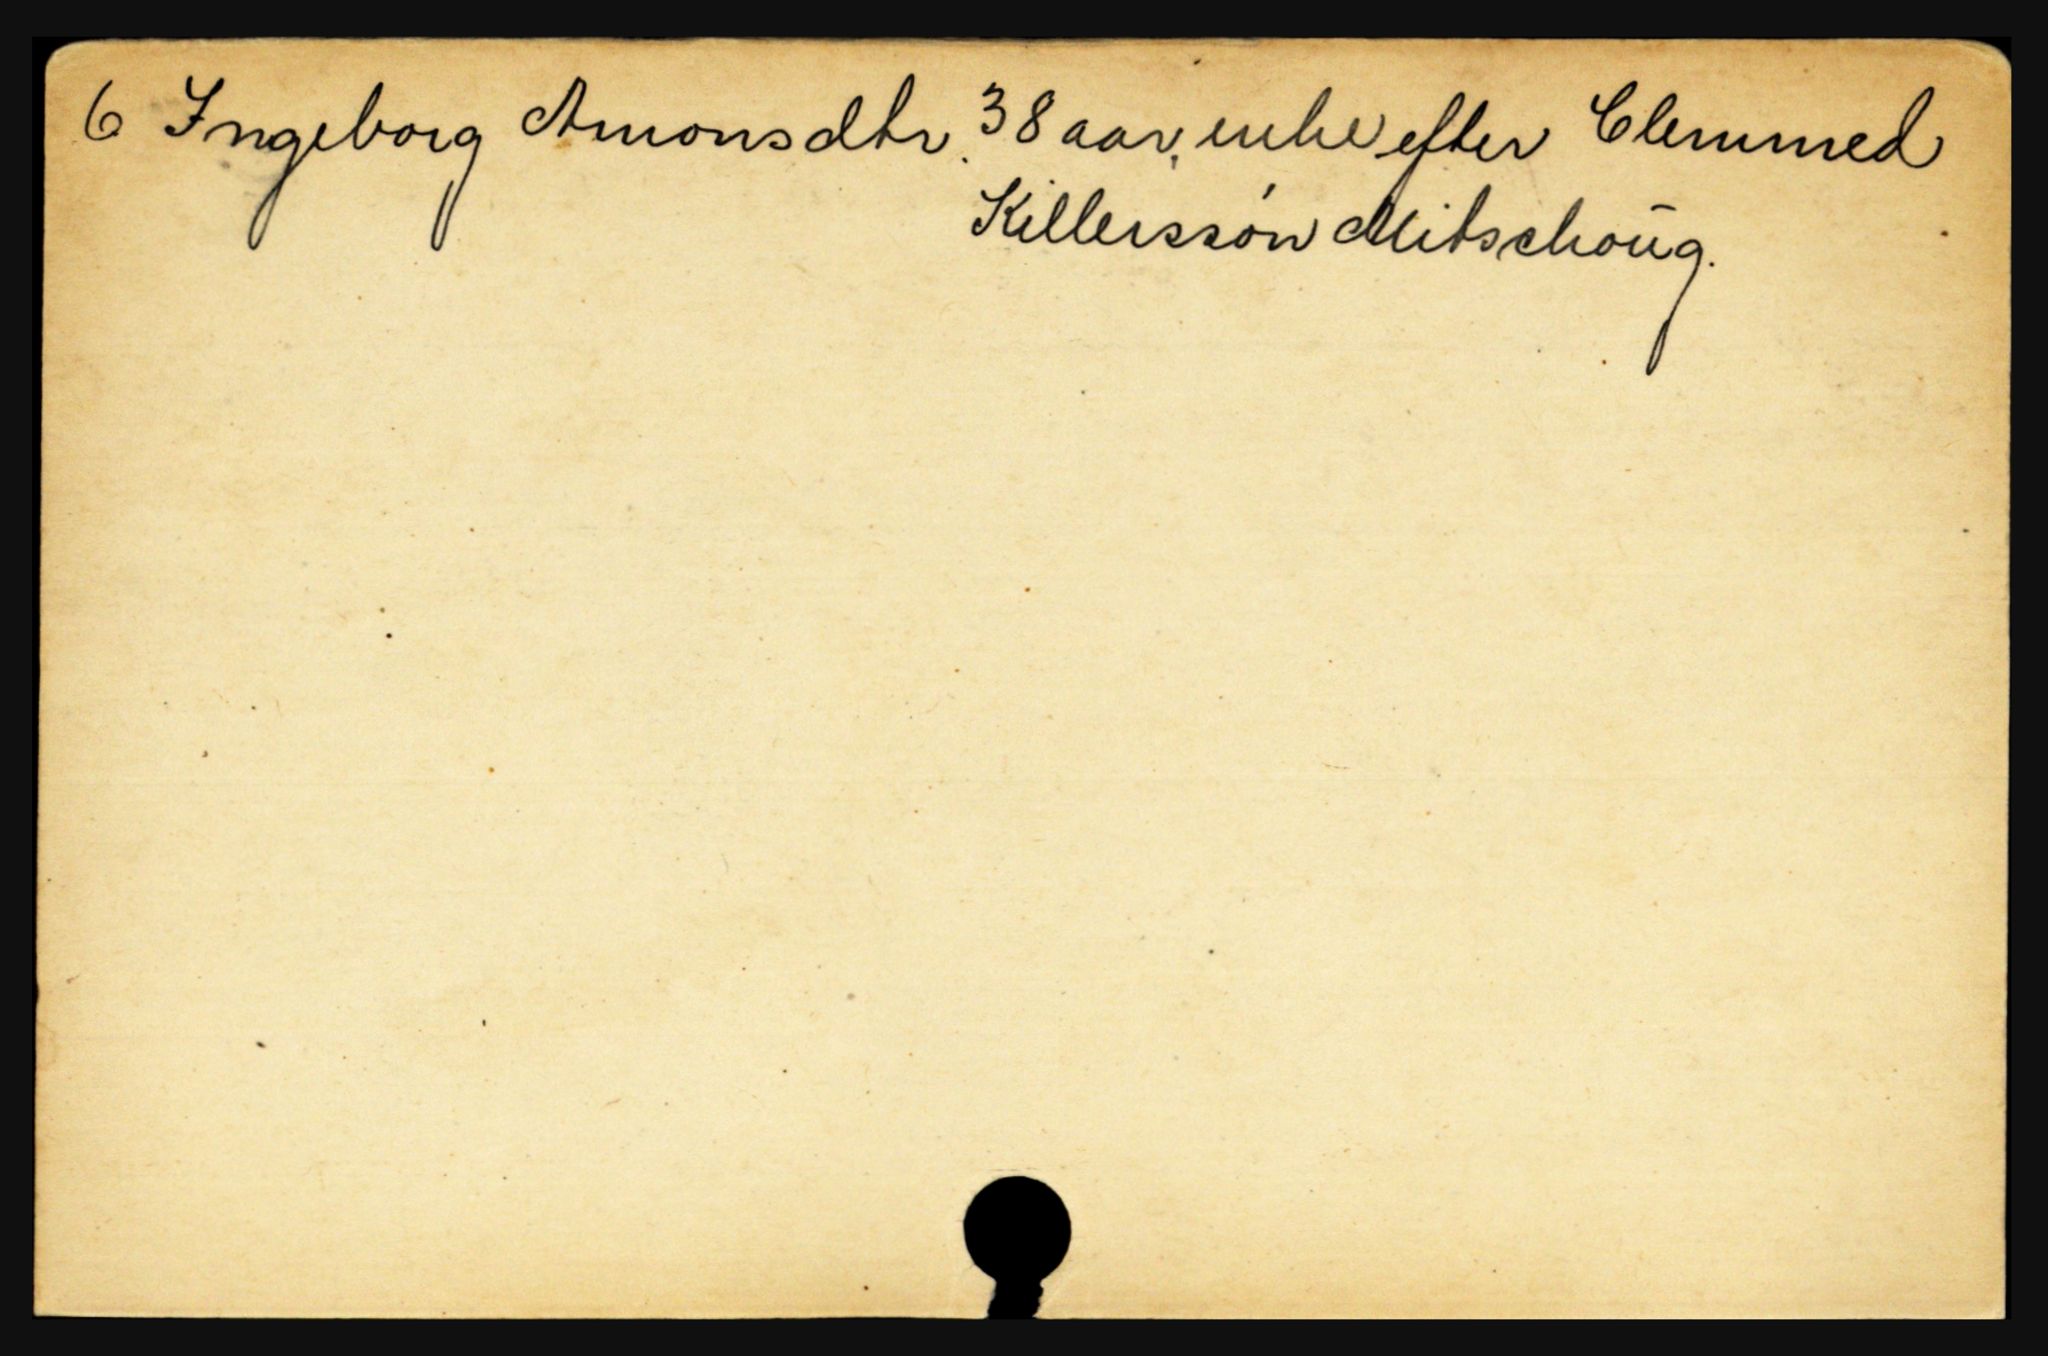 6 Ingeborg Amonsdtr. 38 aar, enke efter Clemmed
Killerssón Mitschoūg.